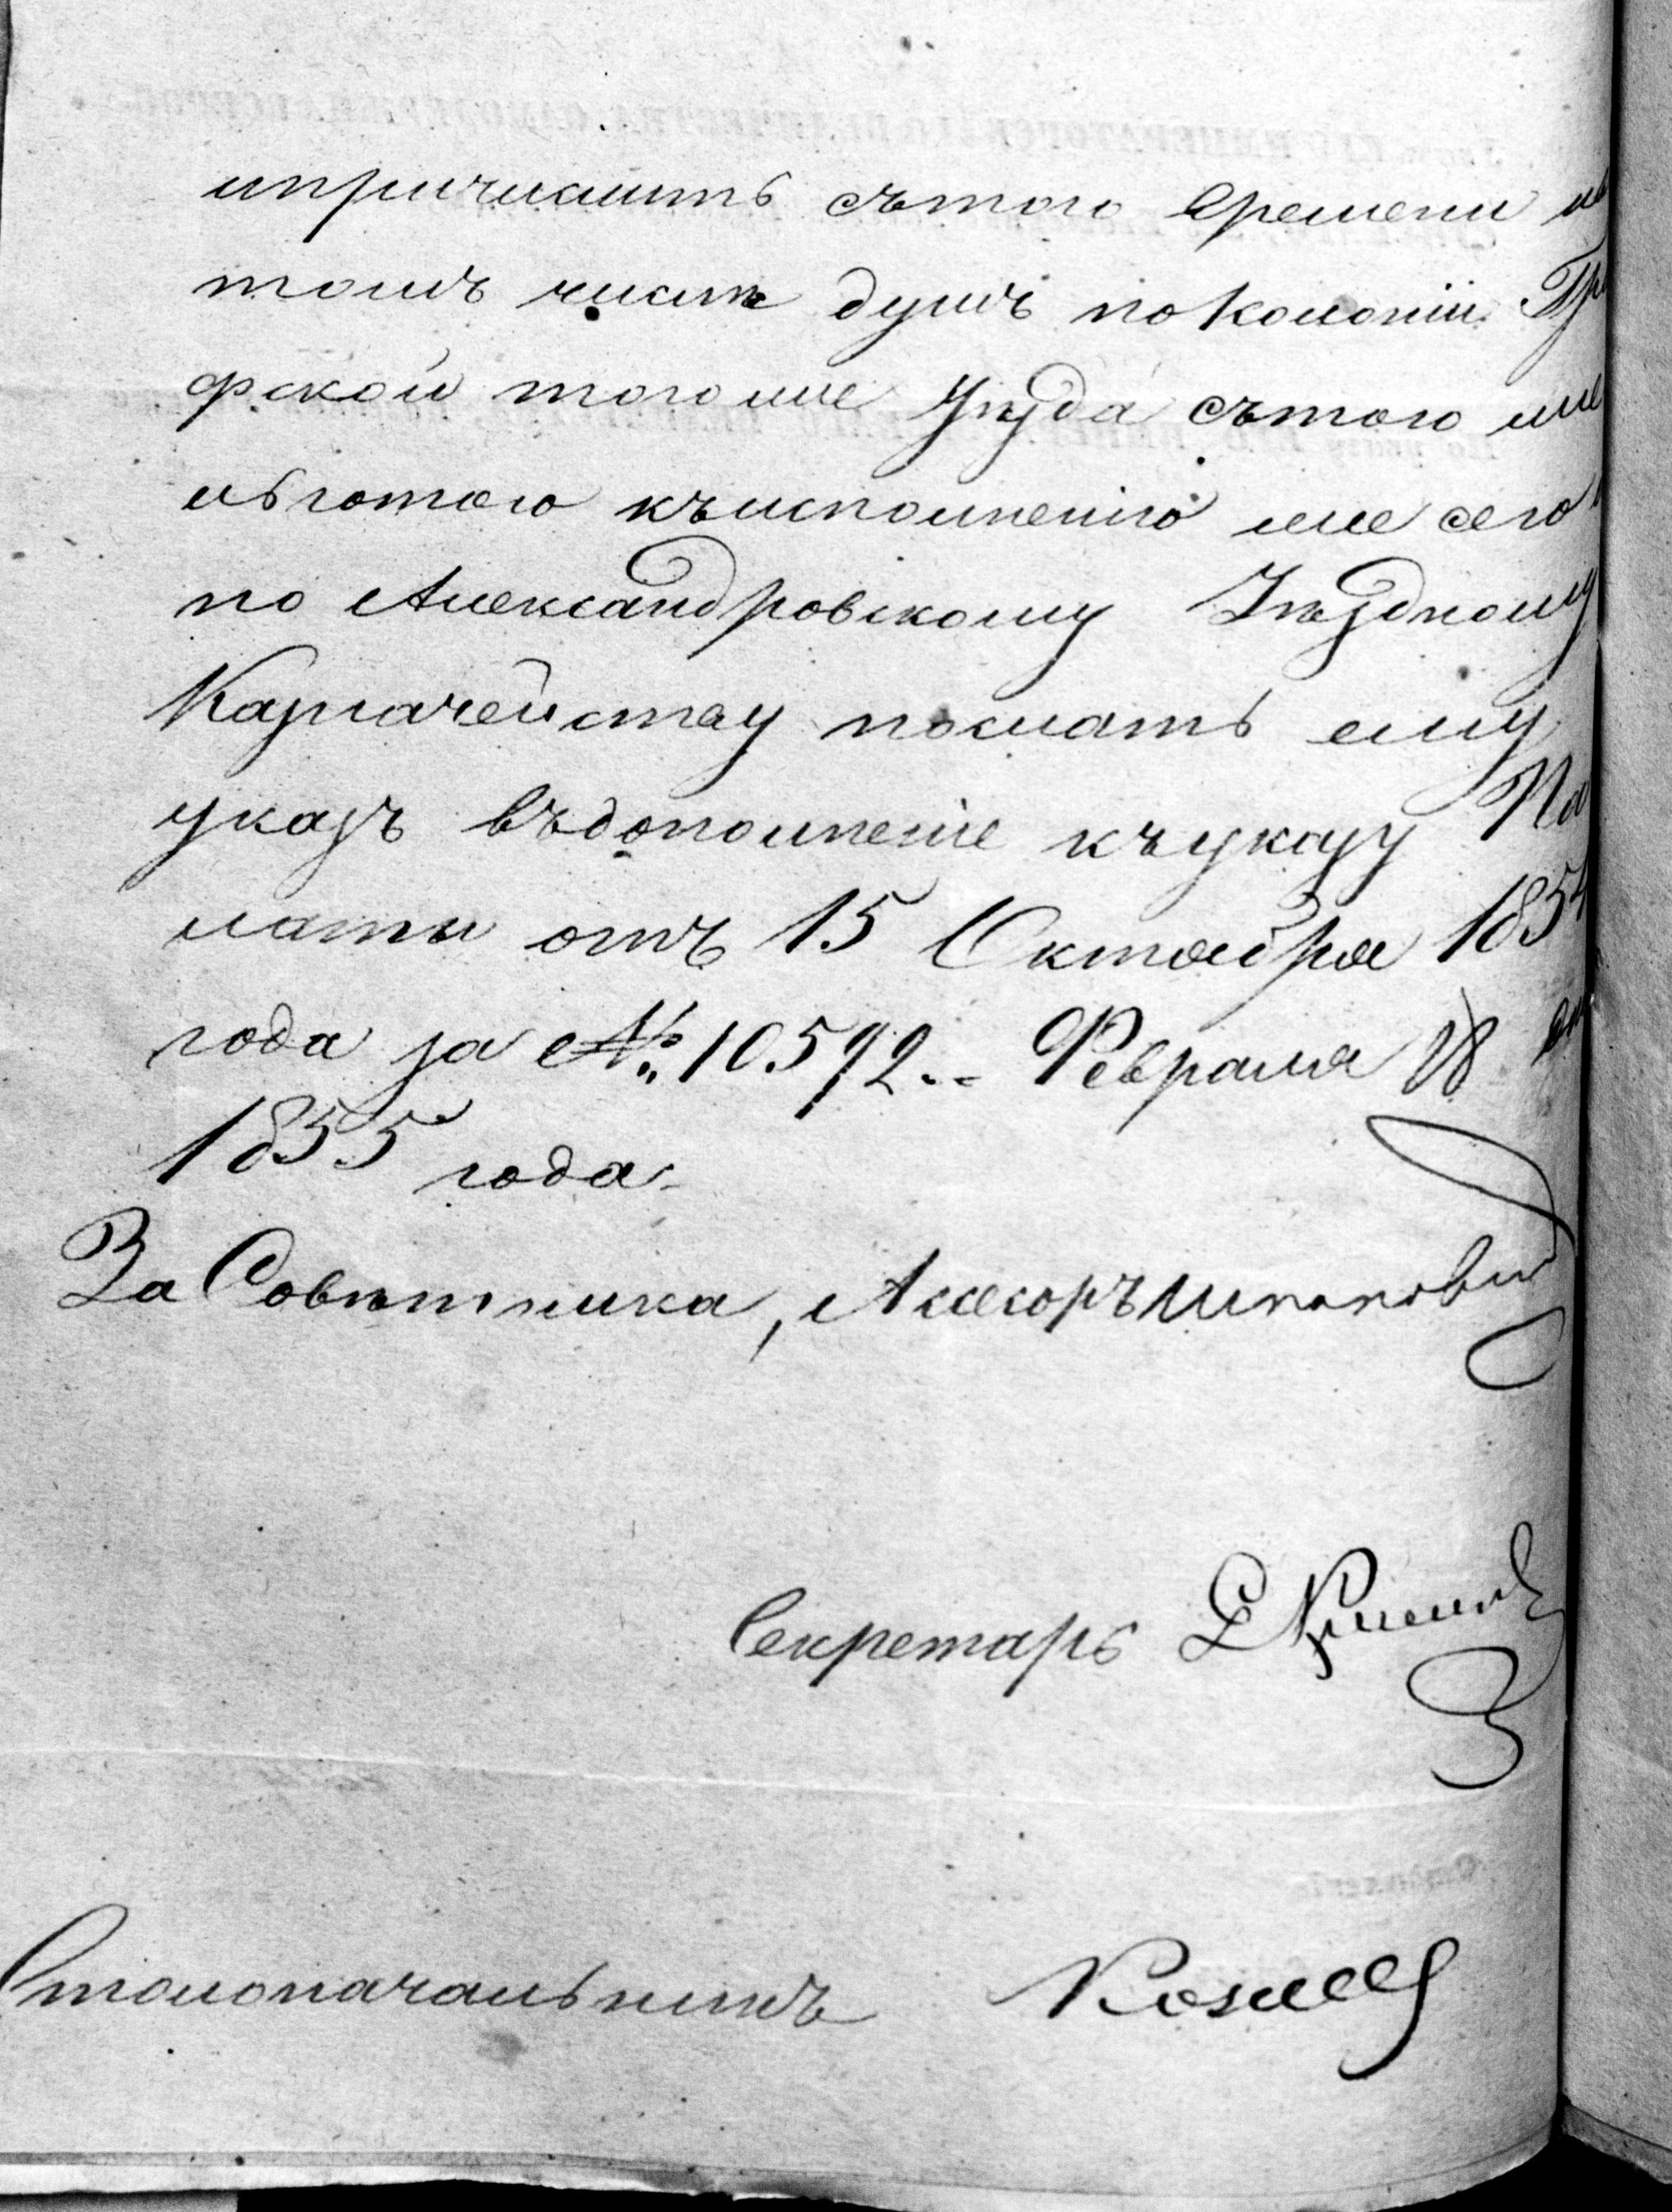 ипричислить сътого времени
томъ числѣ душъ поколоніи Гра
фской тогоже Уѣзда сътою же
льготою къисполненію же сего
по Александровскому Уѣздному
Казначейству послать ему
указъ въдополненіе къуказу Па
латы отъ 15 Октября 1854
года за № 10.592.. Февраля
1855 года.
За Совѣтника, Ассесоръ
Секретарь
Столоначальникъ